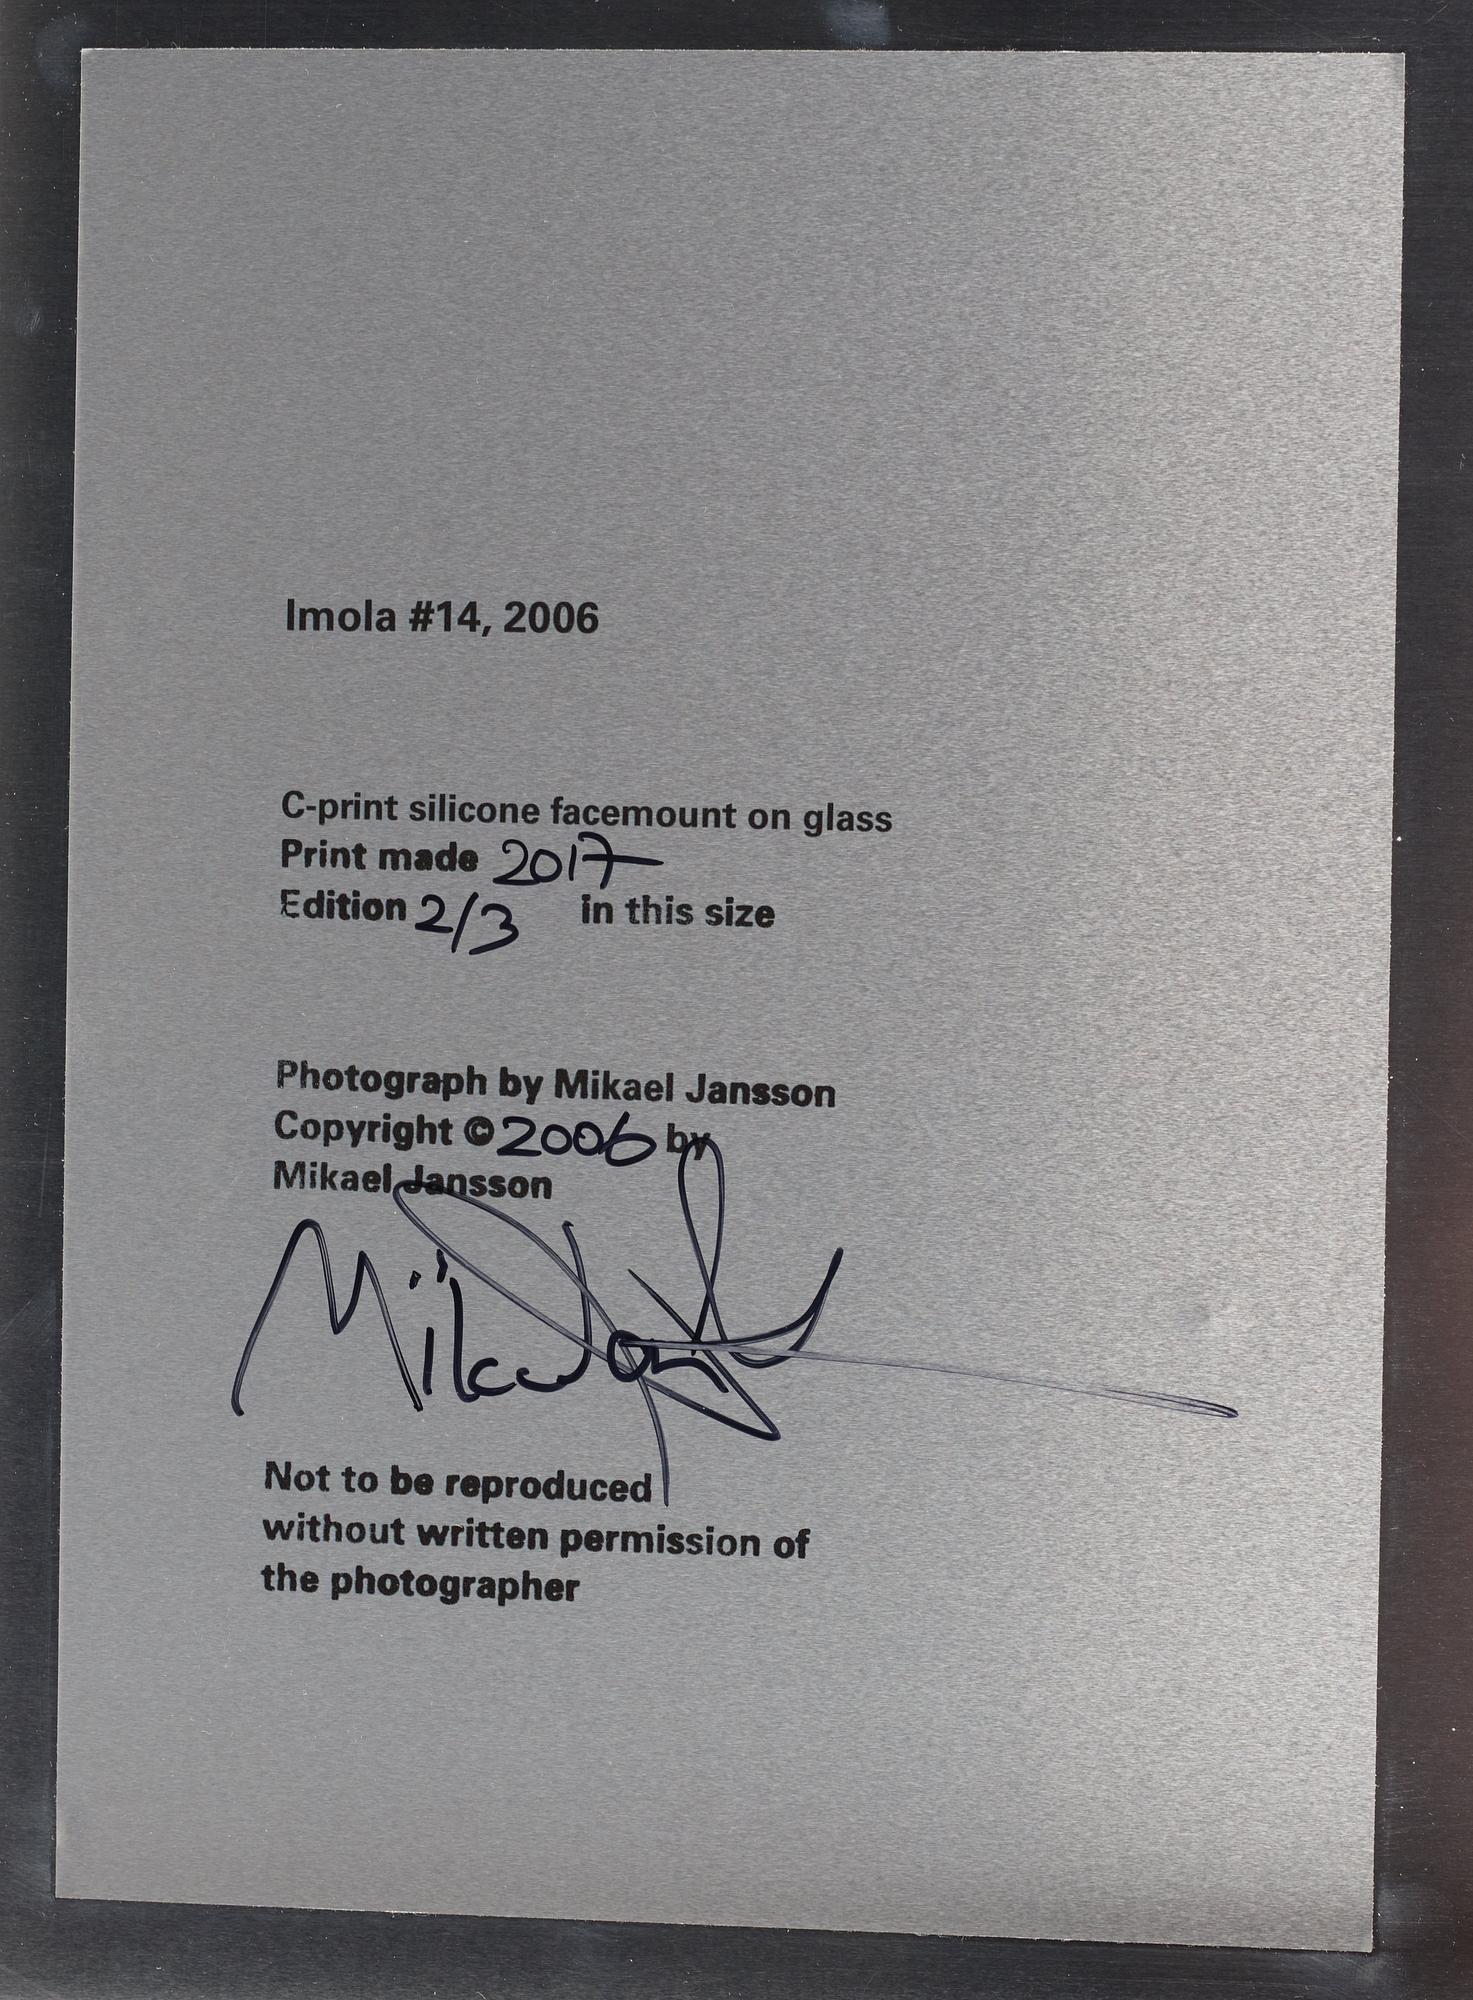 Imola #14, 2006
C-print silicone facemount on glass
Print made 2017
Edition 2/3 in this size
Photograph by Mikael Jansson
Copyright © 2006 by
Mikael Jansson
Not to be reproduced
without written permission of
the photographer